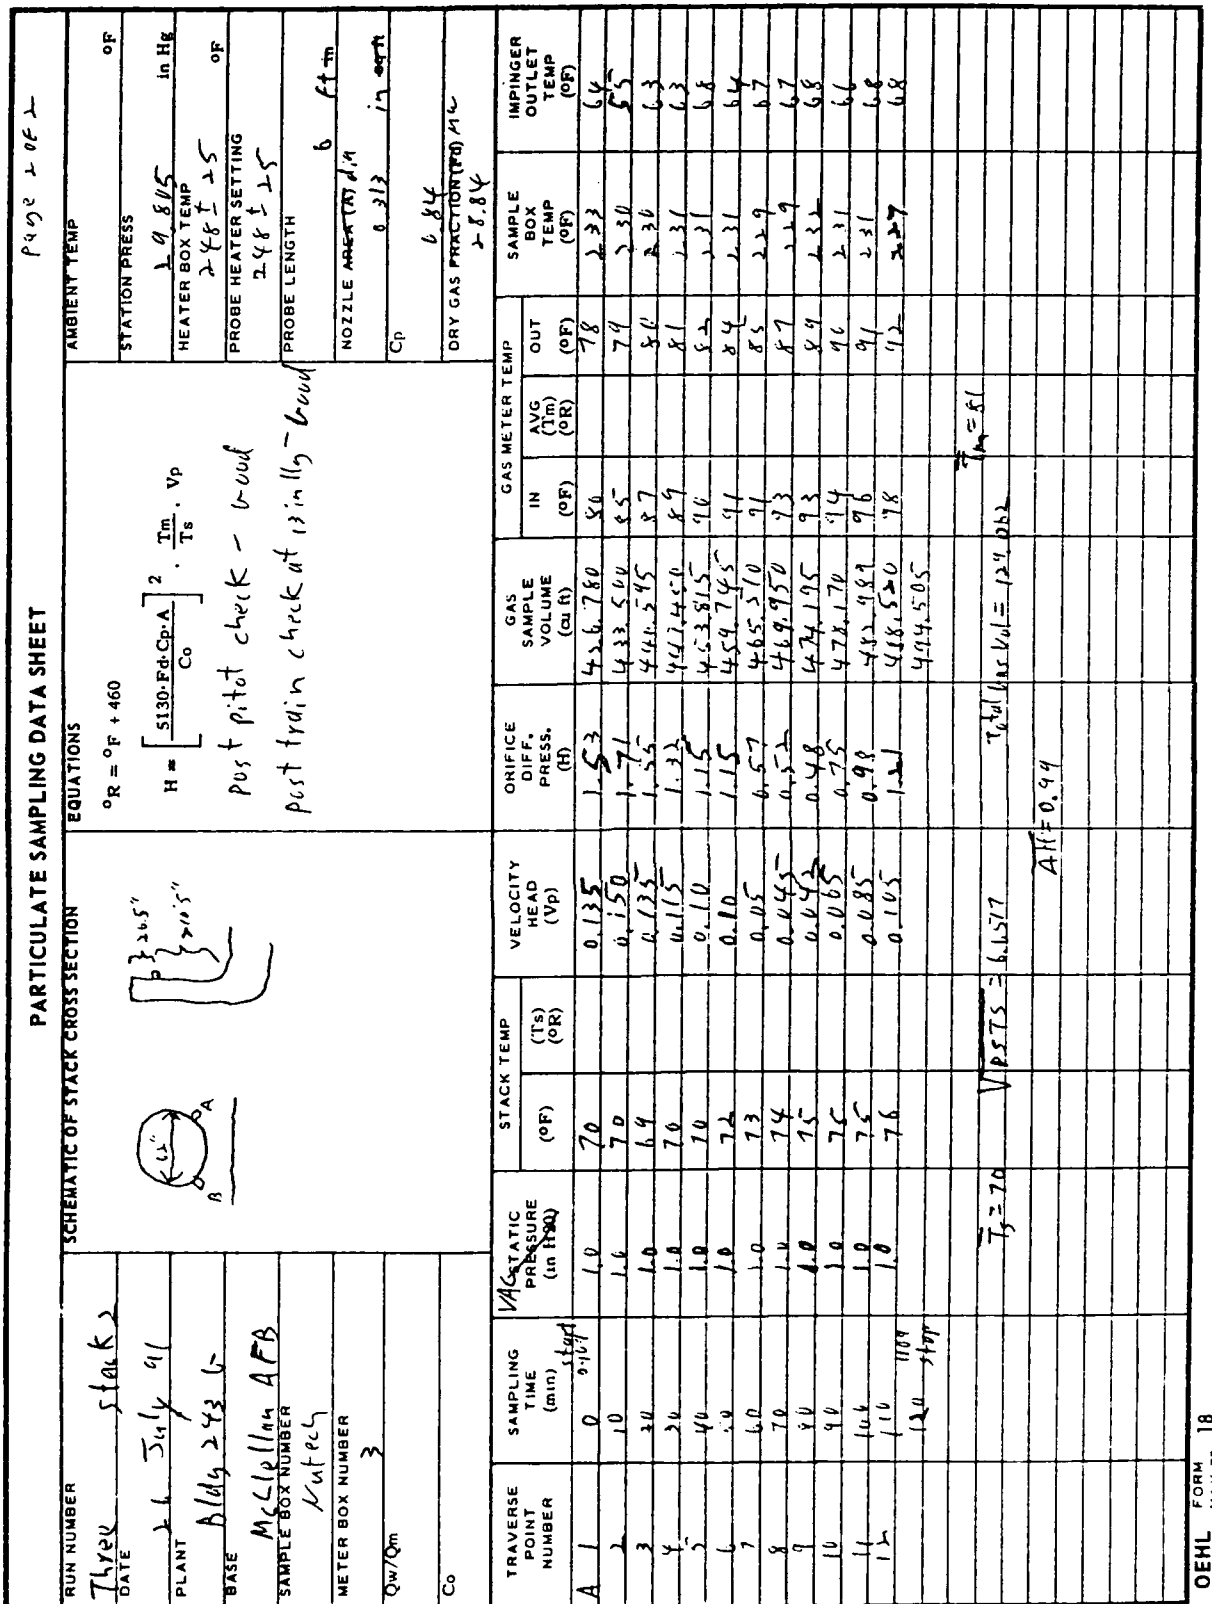 Page 2 OF 2
PARTICULATE SAMPLING DATA SHEET
RUN NUMBER
Three stack 2
DATE
26 July 91
PLANT
Bldg 243 G
BASE
McClellan AFB
SAMPLE BOX NUMBER
Nutech
METER BOX NUMBER
3
Qw/Qm
Co
SCHEMATIC OF STACK CROSS SECTION
B
A
}26.5"
EQUATIONS
°R = °F + 460
H = [ 5130·Fd·Cp·A / Co ]² · Tm / Ts · Vp
post pitot check - Good
post train check at 13 in Hg - Good
AMBIENT TEMP
°F
STATION PRESS
29.805 in Hg
HEATER BOX TEMP
248 ± 25 °F
PROBE HEATER SETTING
248 ± 25
PROBE LENGTH
6 ft in
NOZZLE AREA (A) dia
0.313 in sq ft
Cp
0.84
DRY GAS FRACTION (Fd) MW
28.84
TRAVERSE POINT NUMBER
SAMPLING TIME (min)
VAC STATIC PRESSURE (in H2O)
STACK TEMP
(°F)
(Ts) (°R)
VELOCITY HEAD (Vp)
ORIFICE DIFF. PRESS. (H)
GAS SAMPLE VOLUME (cu ft)
GAS METER TEMP
IN (°F)
AVG (Tm) (°R)
OUT (°F)
SAMPLE BOX TEMP (°F)
IMPINGER OUTLET TEMP (°F)
start
A 1 0 1.0 70 0.135 1.53 426.780 80 78 233 64
2 10 1.0 70 0.150 1.71 433.500 85 79 230 55
3 20 1.0 69 0.135 1.55 440.595 87 80 230 63
4 30 1.0 70 0.115 1.32 447.450 89 81 231 63
5 40 1.0 70 0.10 1.15 453.815 90 82 231 68
6 50 1.0 72 0.10 1.15 459.745 91 84 231 64
7 60 1.0 73 0.05 0.57 465.510 91 85 229 67
8 70 1.0 74 0.045 0.52 469.950 93 87 229 67
9 80 1.0 75 0.042 0.48 474.195 93 89 232 68
10 90 1.0 75 0.065 0.75 478.170 94 90 231 66
11 100 1.0 75 0.085 0.98 482.989 96 91 231 68
12 110 1.0 76 0.105 1.21 488.520 98 92 227 68
120 1109 stop 494.505
Ts = 70
√PSTS = 6.6517
Total Gas Vol = 129.062
Tm = 81
ΔH = 0.99
OEHL FORM 18